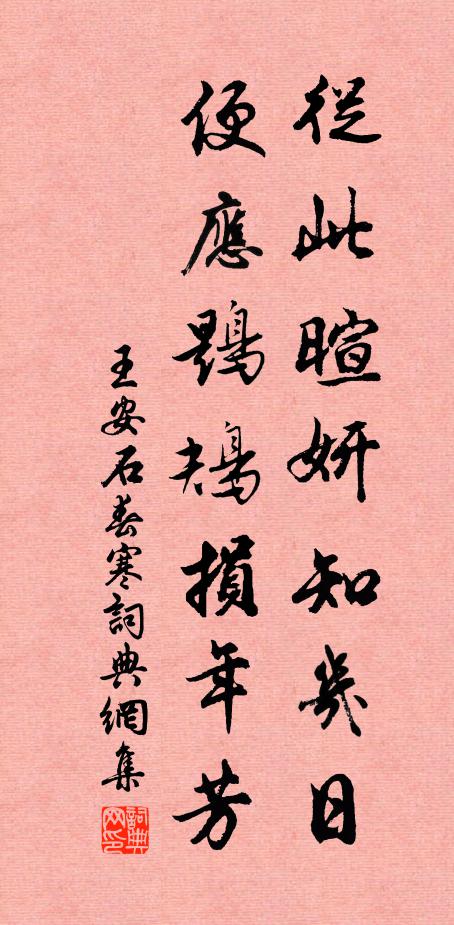 從此暄妍知幾日
便應鶗鴂損年芳
王安石春寒詞典網集
詞典网印